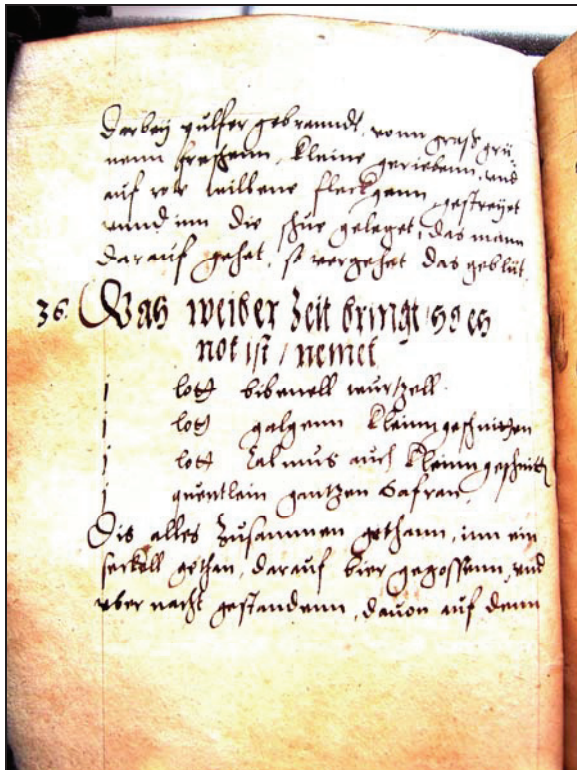 Darbey pulfer gebranndt, vonn groß grü-
nenn froschenn, kleine geriebenn, und
auf rot willene fleckgenn gestreyet
unnd inn die schue geleget, das mann
darauf gehet, so vergehet das geblüt.
36. Was weiber Zeit bringt / so es
not ist / nemet
j lott bibenell wurtzell
j lott galgenn kleinn geschnitten
j lott Calmus auch kleinn geschnitt
j quentlein gantzen Safran.
Dis alles Zusammen gethann, inn ein
seckell gethan, darauf bier gegossenn, und
uber nacht gestandenn, davon auf denn